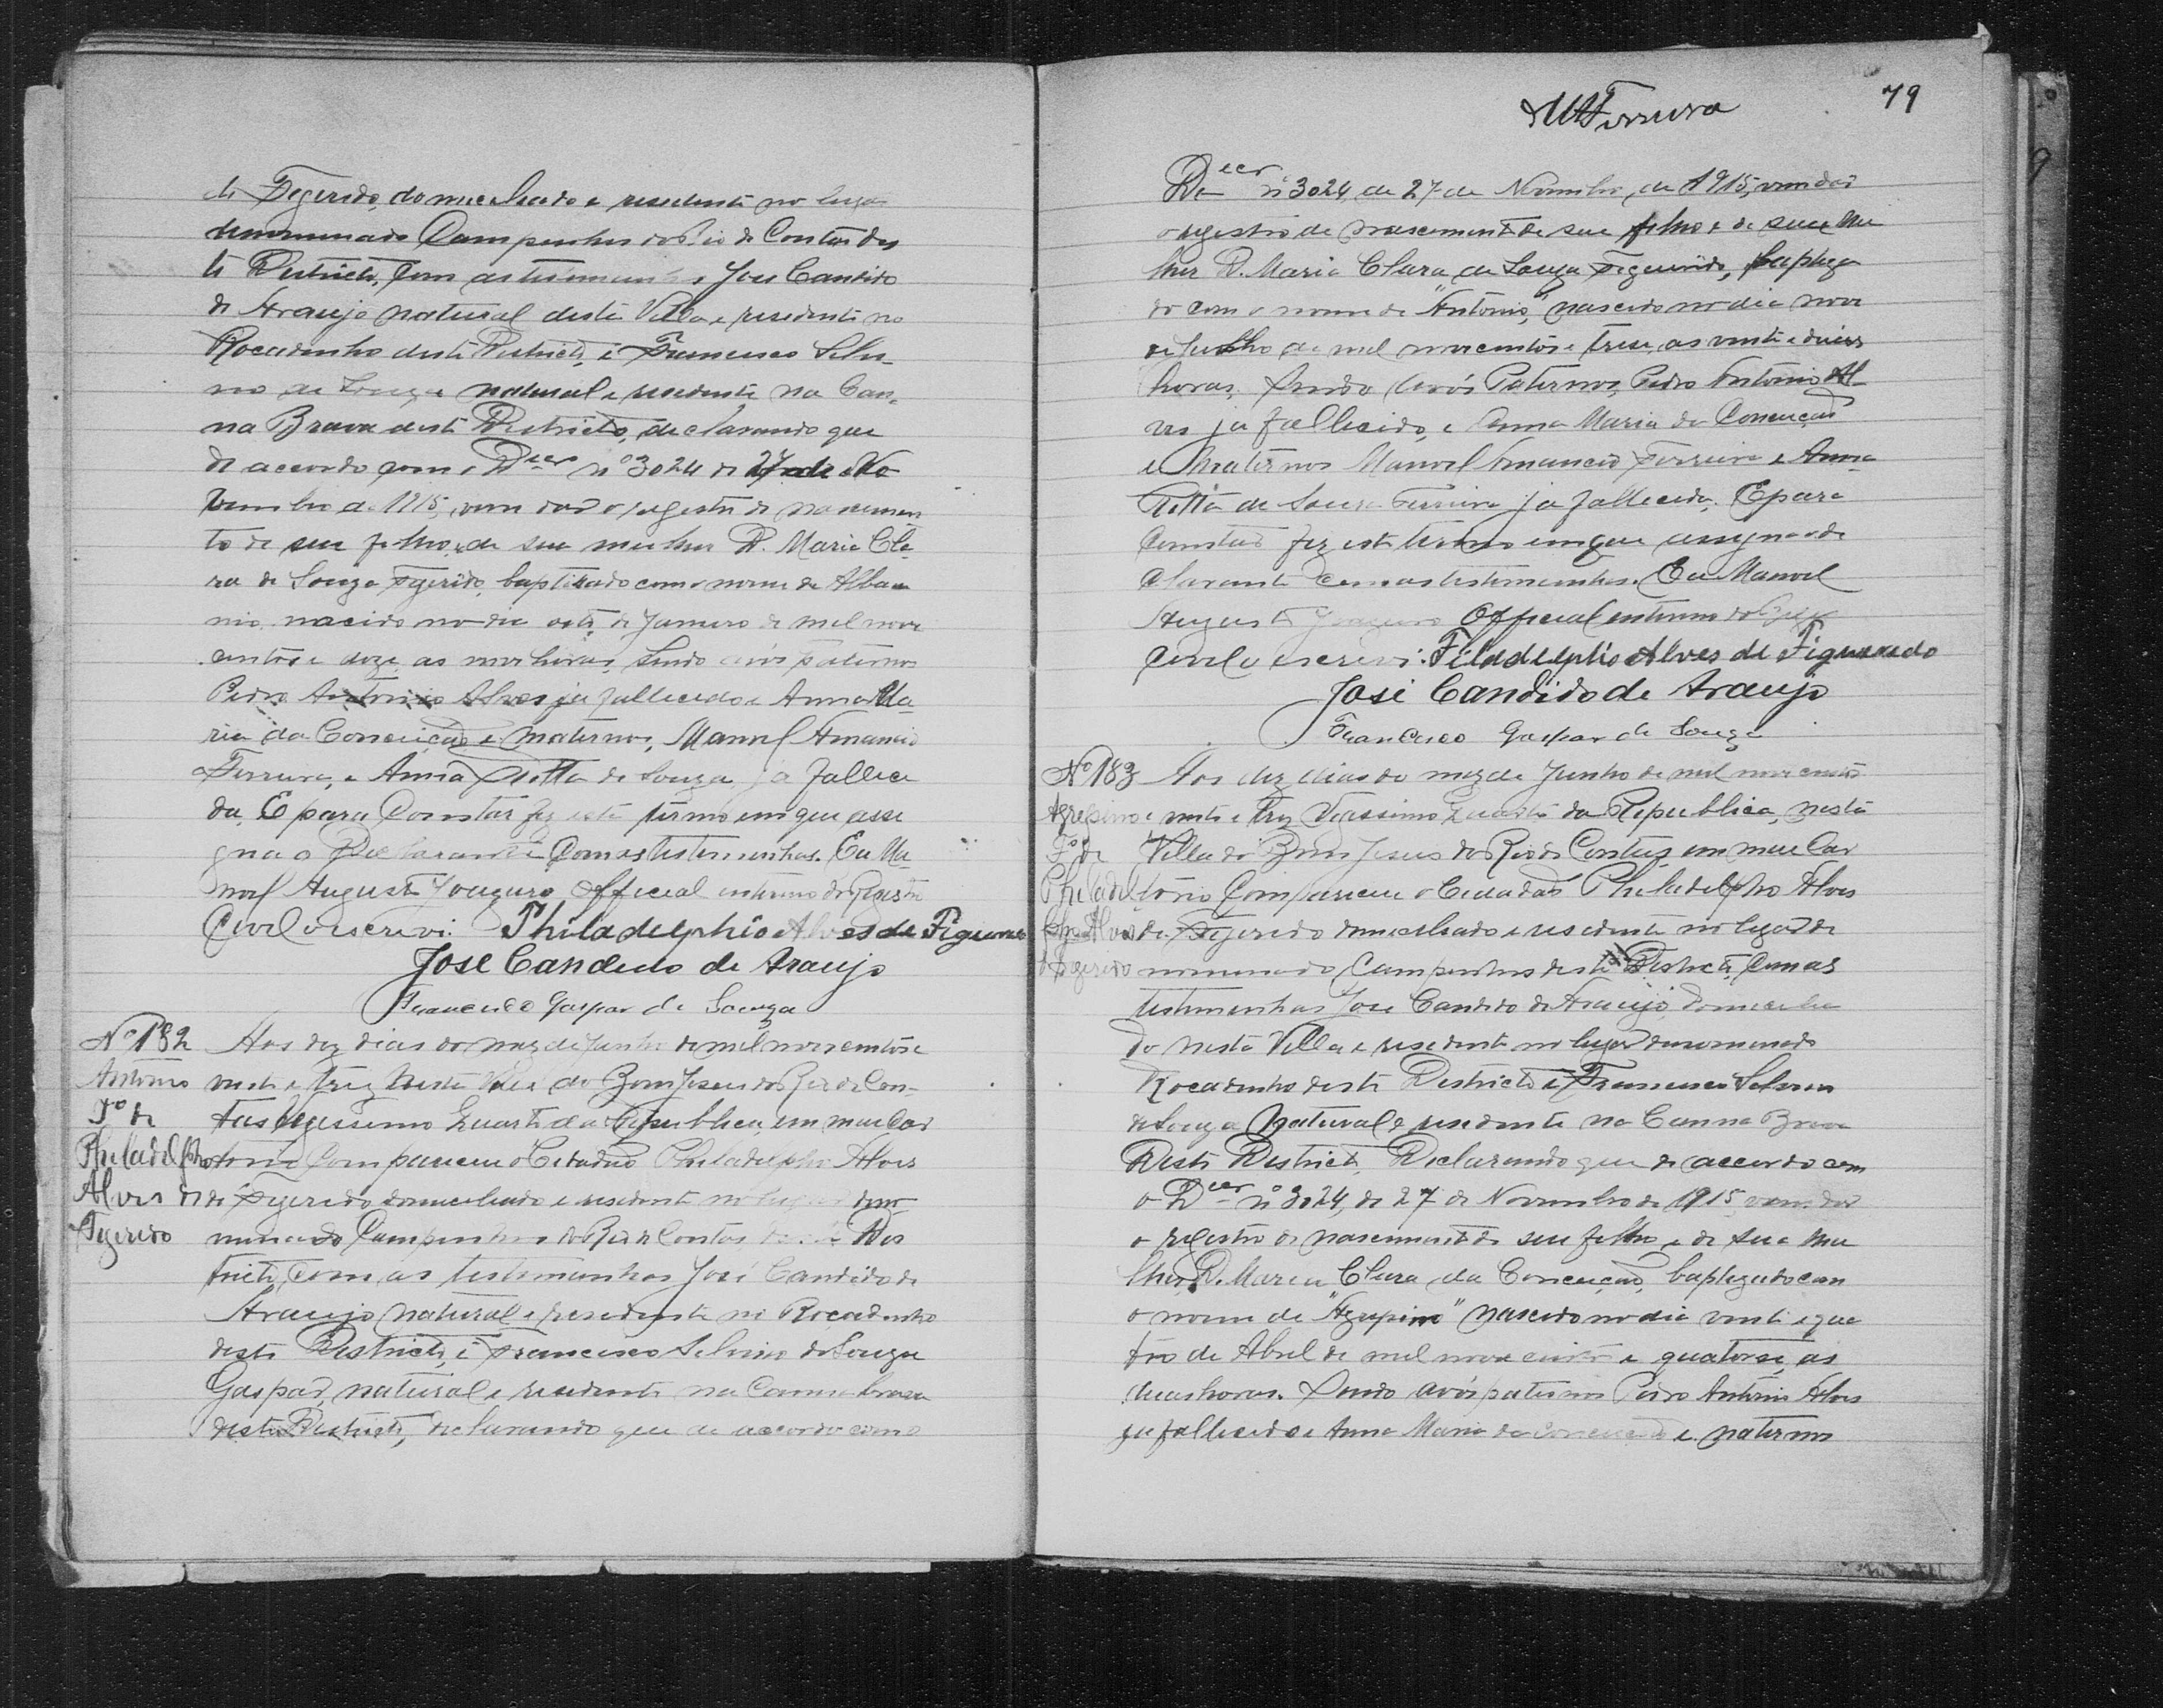 de Figerido, domecelhado e residente no lugar
denominado Campinhos do Rio de Contas des
te Districto, com as testemunhas Jose Candido
de Araujo natural desta Villa e residente no
Rocadinho deste Districto, e Francisco Silvi-
no de Souza natural e residente na Can-
na Brava deste Districto, declarando que
de accordo com o Decr nº 3024 de 27 de No
vembro de 1915, vem dar o registro de nascimen
to de seu filho e de sua mulher D. Maria Cla
ra de Souza Figerido, baptisado com o nome de Alba
nio, nacido no dia oito de Janeiro de mil nove
centos e doze, as nove horas, Sendo avós paternos
Pedro Antonio Alves ja fallecido e Anna Ma-
ria da Conceição e maternos, Manoel Amancio
Ferreira, e Anna Ritta de Souza ja falleci
da. E para Constar fiz este termo em que assi
gna o Declarante Com as testemunhas. Eu Ma
noel Augusto Joaquro Official interino do Registro
Civil o escrevi. Philadelphio Alves de Figueredo
José Candido de Araujo
Francisco Gaspar de Souza
Nº 182 Aos dez dias do mez de Junho de mil novecentos e
Antonio vinte e trez nesta Villa do Bom Jesus do Rio de Con-
Fº de tas Vegessimo Quarto da Republica, em meu Car
Philadelpho torio Compareceu o Cidadão Philadelpho Alves
Alves de de Figerido domecelhado e residente no lugar deno-
Figerido minado Campinhos do Rio de Contas deste Dis
tricto, com as testemunhas José Candido de
Araujo natural e residente no Rocadinho
deste Districto, e Francisco Silvino de Souza
Gaspar, natural e residente na Canna brava
deste Districto, declarando que de accordo com o
79
MAFerreira
Decr nº 3024, de 27 de Novembro, de 1915, vem dar
o registro de nascimento de seu filho e de sua Mu
lher D. Maria Clara de Souza Figueirido, baptiza
do com o nome de "Antonio", nascido no dia nove
de Junho de mil novecentos e treze, as vinte e duas
horas, Sendo Avós Paternos, Pedro Antonio Al-
ves ja fallecido, e Anna Maria da Conceição
e Maternos Manoel Amancio Ferreira e Anna
Ritta de Souza Ferreira ja fallecida. E para
Constar fiz este termo em que assigna o de
clarante Com as testemunhas. Eu Manoel
Augusto Joaquro Official interino do Registro
Civil o escrevi. Filadelphio Alves de Figueredo
José Candido de Araujo
Francisco Gaspar de Souza
Nº 183 Aos dez dias do mez de Junho de mil novecentos
Agrepino e vinte e trez Vegassimo Quarto da Republica, nesta
Fº de Villa do Bom Jesus do Rio de Contas, em meu Car
Philadel torio Compareceu o Cidadão Philadelpho Alves
pho Alves de Figerido domecelhado e residente no lugar de
de Figerido nominado Campinhos deste Districto, Com as
testemunhas Jose Candido de Araujo, domecelha
do nesta Villa e residente no lugar denominado
Rocadinho deste Districto e Francisco Silvino
de Souza Natural e residente na Canna Brava
Deste Districto, Declarando que de accordo com
o Decr nº 3024, de 27 de Novembro de 1915 vem dar
o registro de nascimento de seu filho e de sua Mu
lher, D. Maria Clara da Conceição, baptizado com
o nome de "Agrepino" nascido no dia vinte e qua
tro de Abril de mil nove centos e quatorse, as
duas horas. Sendo avós paternos Pedro Antonio Alves
ja fallecido e Anna Maria da Conceição e maternos